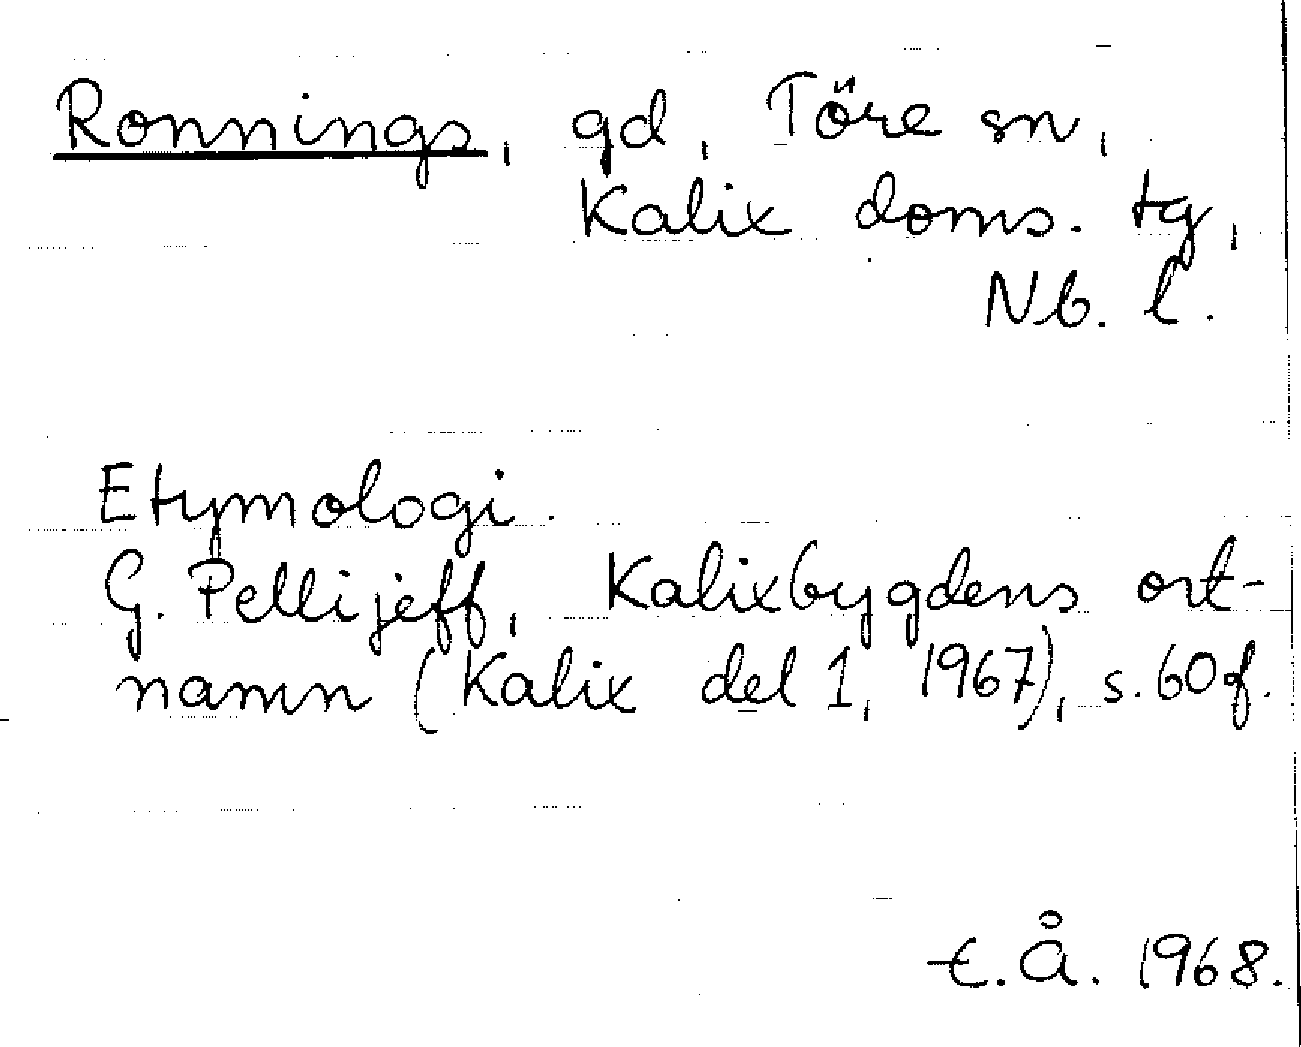 Ronnings, gd, Töre sn,
Kalix doms. tg,
Nb. l.
Etymologi.
G. Pellijeff, Kalixbygdens ort-
namn (Kalix del 1, 1967), s. 60 f.
E. Å. 1968.